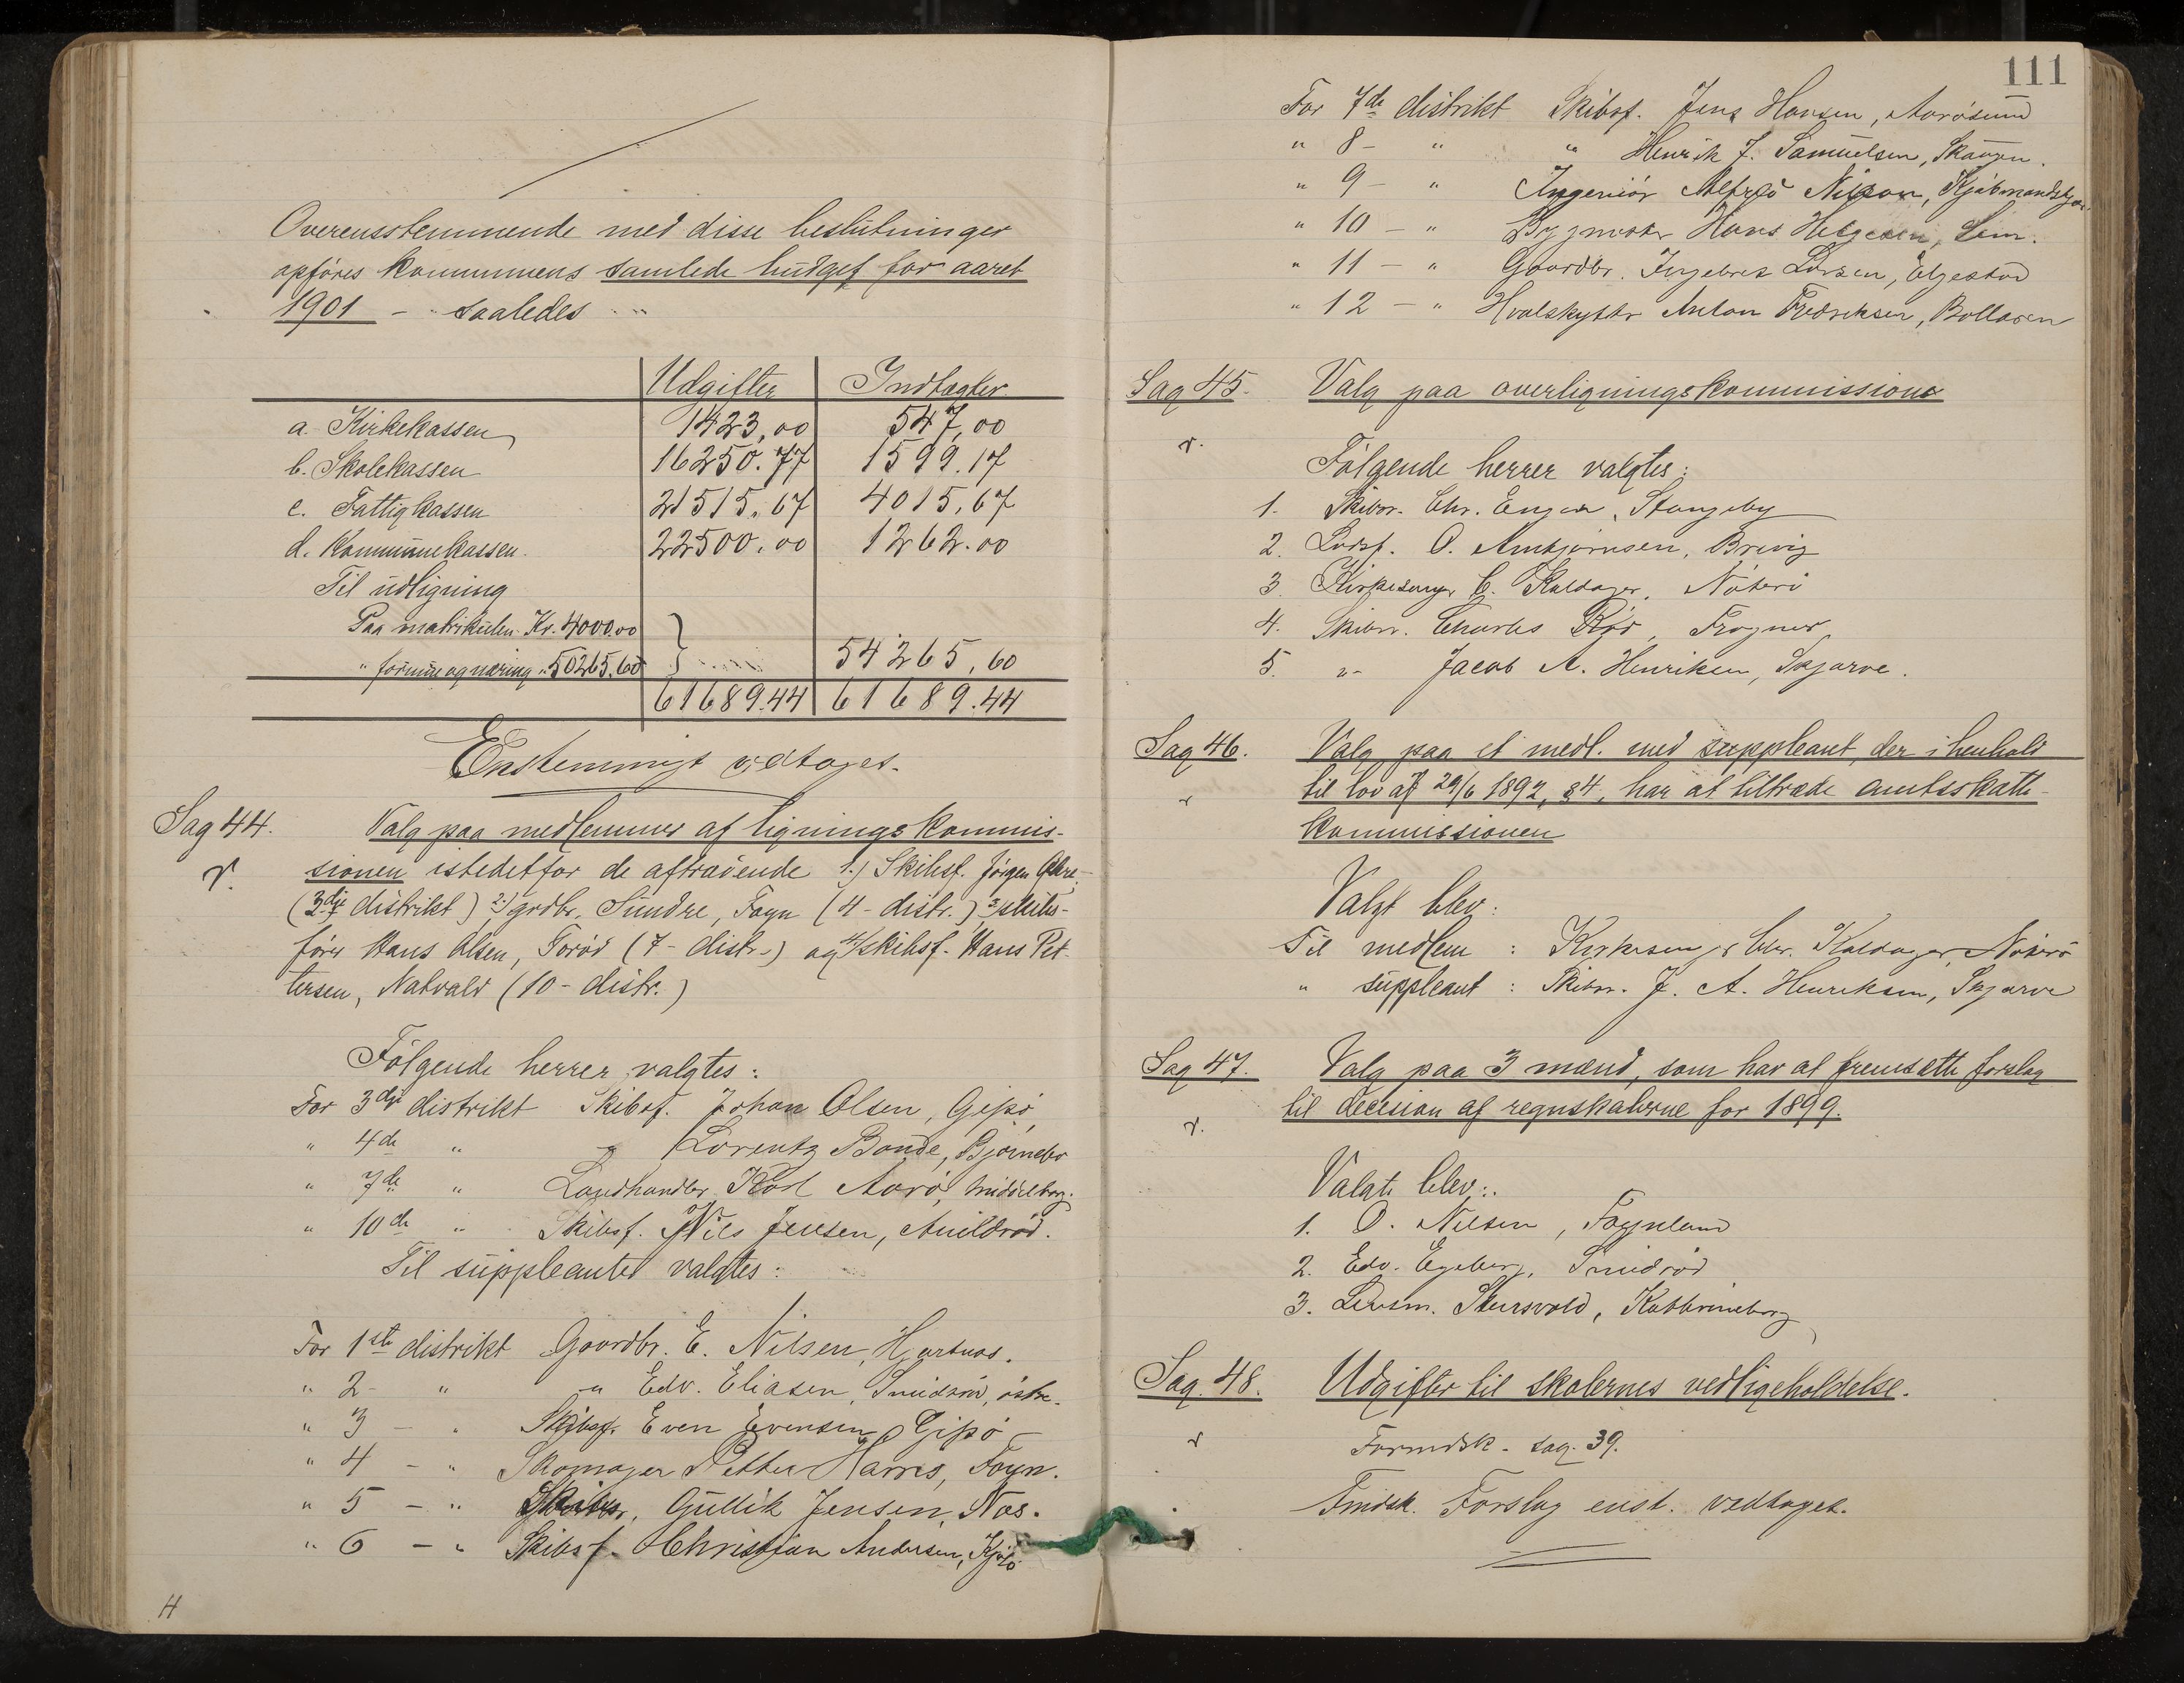 Overensstemmende med disse beslutninger
opföres kommunens samlede budget for aaret
1901 – saaledes
Udgifter Indtægter
a. Kirkekassen 1423,00 547,00
b. Skolekassen 16250.77 1599.17
c. Fattigkassen 21515.67 4015.67
d. Kommunekassen 22500.00 1262.00
Til udligning
Paa matrikulen Kr. 4000.00
" formue og næring " 50265.60 54265,60
61689.44 61689.44
Enstemmigt vedtaget.
Sag 44. Valg paa medlemmer af ligningskommis-
sionen istedetfor de aftrædende 1.) Skibsf. Jörgen
(3die distrikt) 2.) grdbr. Sundre, Föyn (4- distr.) 3 skibs-
förer Hans Olsen, Torød (7- distr.) og 4/ skibsf. Hans Pet-
tersen, Natvald (10- distr.)
Fölgende herrer valgtes:
For 3die distrikt Skibsf. Johan Olsen, Gipö
" 4de " " Lorentz Bonde, Bjørnebo
" 7de " Landhandler Karl Aarö, Middelborg.
" 10de " Skibsf. Nils Jensen,
Til suppleanter valgtes:
For 1ste distrikt Gaardbr. E. Nilsen, Hertnæs.
" 2- " " Edv. Eliasen, Smidsröd, östre.
" 3 – " Skibsf. Even Evensen, Gipö
" 4 – " Skomager Petter Harms, Föyn.
" 5 – " Skibsr. Gullik Jensen, Næs.
" 6 – " Skibsf. Christian Andersen, Kjölö
H
111
For 7de distrikt Skibsf. Jens Hansen, Aarösund
" 8– " " Henrik J. Samuelsen, Skaugen.
" 9 – " Ingeniör Alfred Nilson,
" 10 – " Bygmester Hans Helgesen, Lem.
" 11 – " Gaardbr. Ingebret Larsen, Elgestad
" 12 – " Hvalskytter Anton Fredriksen, Bollæren
Sag 45. Valg paa overligningskommission
v.
Fölgende herrer valgtes:
1. Skibsr. Chr. Enger, Stangeby
2. Lodsf. O. Anbjörnsen, Brevig
3. Kirkesanger C. Kaldager, Nöterö
4. Skibsr. Charles Röd, Frogner
5. " Jacob A. Henriksen, Skjærve.
Sag 46. Valg paa et medl. med suppleant, der i henhold
til lov af 29/6 1892, §4, har at tiltræde amtsskatte-
kommissionen
Valgt blev:
Til medlem : Kirkesanger Chr. Kaldager, Nöterö
" suppleant : Skibsr. J. A. Henriksen, Skjærve
Sag 47. Valg paa 3 mænd, som har at fremsætte forslag
til decision af regnskaberne for 1899.
v.
Valgte blev:
1. O. Nilsen, Föynland
2. Edv. Egeberg, Smidsröd
3. Lensm. Stensvold, Kathrineborg
Sag. 48. Udgifter til skolernes vedligeholdelse.
v Formdsk. sag. 39.
Fmdsk. Forslag enst. vedtaget.